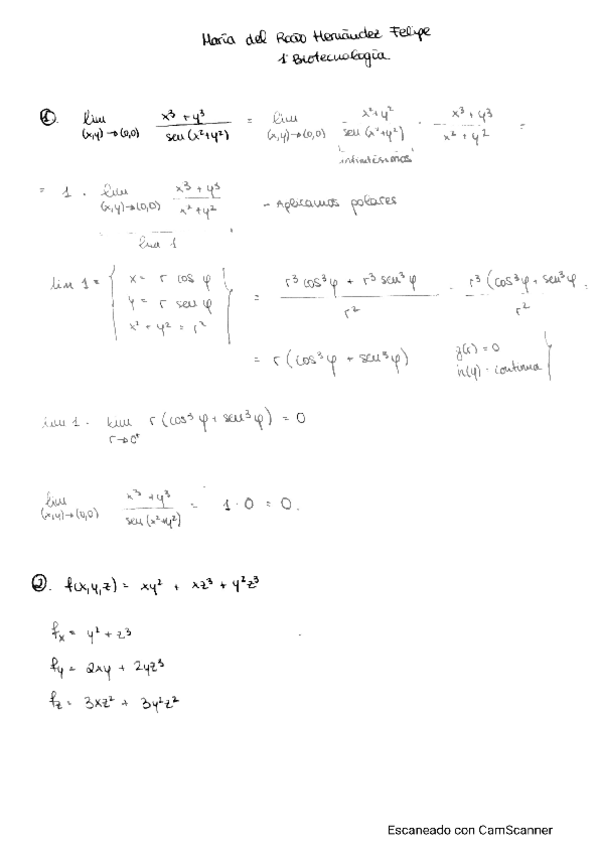 María del Rocío Hernández Felipe
1º Biotecnología
①. lim (x,y)→(0,0) x³ + y³ / sen (x²+y²) = lim (x,y)→(0,0) x²+y² / sen (x²+y²) · x³ + y³ / x² + y² =
infinitésimos
= 1 · lim (x,y)→(0,0) x³ + y³ / x² + y² - Aplicamos polares
lim 1
lim 1 = { x = r cos φ
y = r sen φ
x² + y² = r² } = r³ cos³ φ + r³ sen³ φ / r² = r³ (cos³ φ + sen³ φ) / r² =
= r (cos³ φ + sen³ φ) g(r) = 0
h(φ) = continua
lim 1 = lim r→0⁺ r (cos³ φ + sen³ φ) = 0
lim (x,y)→(0,0) x³ + y³ / sen (x²+y²) = 1 · 0 = 0.
②. f(x,y,z) = xy² + xz³ + y²z³
fx = y² + z³
fy = 2xy + 2yz³
fz = 3xz² + 3y²z²
Escaneado con CamScanner